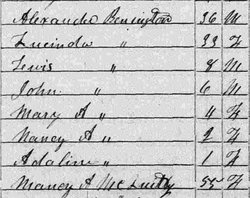 Alexander 36 M
Lucinda " 33 F
Lewis " 8 M
John " 6 M
Mary A " 4 F
Nancy A " 2 F
Adaline " 1 F
Nancy A 55 F